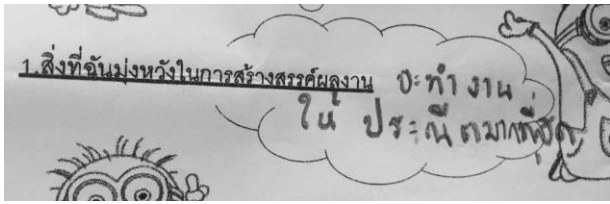 1.สิ่งที่ฉันมุ่งหวังในการสร้างสรรค์ผลงาน จะทำงาน
ให้ ประณีตมากที่สุด